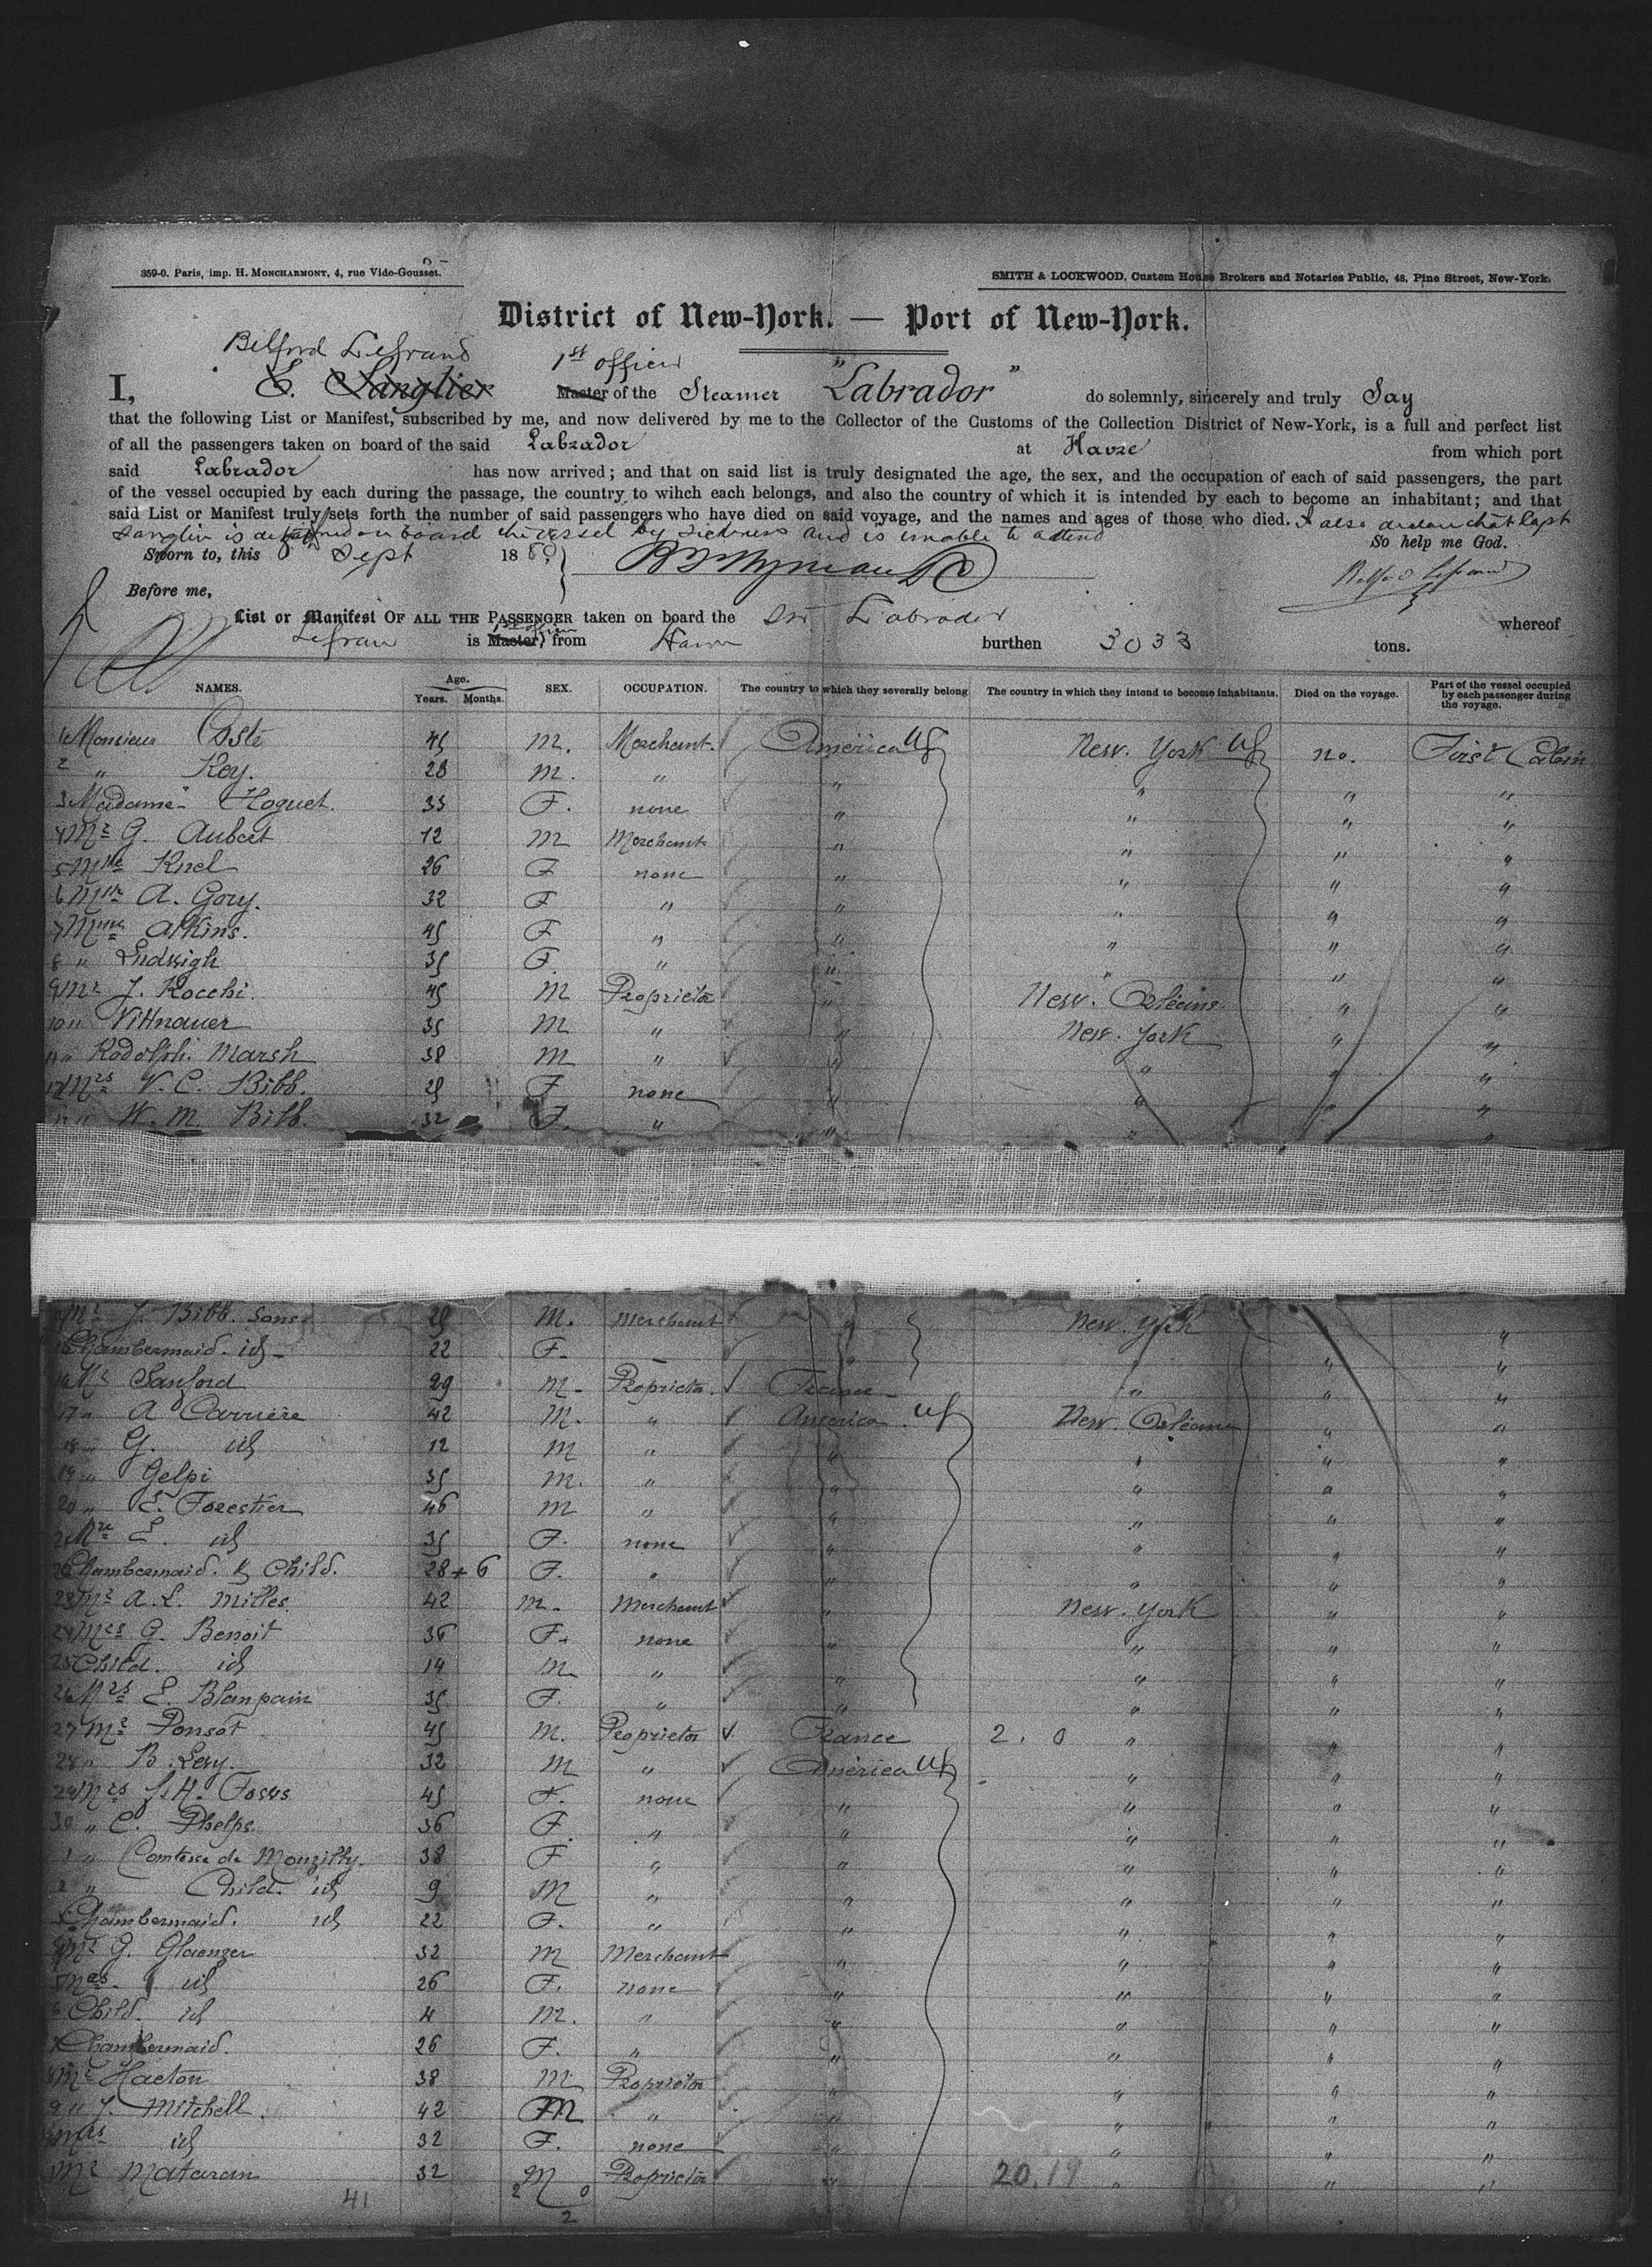 359-0. Paris, imp. H. MONCHARMONT, 4, rue Vide-Gousset.
SMITH & LOCKWOOD, Custom House Brokers and Notaries Public, 48, Pine Street, New-York.
District of New-York. — Port of New-York.
Belford Lefrand 1st officer
I, E. Sanglier Master of the Steamer "Labrador" do solemnly, sincerely and truly Say
that the following List or Manifest, subscribed by me, and now delivered by me to the Collector of the Customs of the Collection District of New-York, is a full and perfect list
of all the passengers taken on board of the said Labrador at Havre from which port
said Labrador has now arrived; and that on said list is truly designated the age, the sex, and the occupation of each of said passengers, the part
of the vessel occupied by each during the passage, the country to wihch each belongs, and also the country of which it is intended by each to become an inhabitant; and that
said List or Manifest truly sets forth the number of said passengers who have died on said voyage, and the names and ages of those who died. I also declare that Capt
Sanglier is detained on board the vessel by sickness and is unable to attend
So help me God.
Sworn to, this 8 Sept 1880
Before me,
List or Manifest OF ALL THE PASSENGER taken on board the Str Labrador whereof
Lefran is Master, 1st officer from Havre burthen 3033 tons.
NAMES. Age. Years. Months. SEX. OCCUPATION. The country to which they severally belong The country in which they intend to become inhabitants. Died on the voyage. Part of the vessel occupied by each passenger during the voyage.
1 Monsieur Coste 45 M. Merchant. America US New. York US no. First Cabin
2 " Rey. 28 M. " " " " "
3 Madame Hoguet. 35 F. none " " " "
4 Mr G. Aubert 12 M Merchant " " " "
5 Mlle Knel 26 F none " " " "
6 Mlle A. Gory. 32 F " " " " "
7 Mme Atkins. 45 F " " " " "
8 " Ludwigh 35 F. " " " " "
9 Mr J. Rocchi. 45 M Proprietor " New. Orléans " "
10 " Vittnauer 35 M " " New. York " "
11 " Rodolph. Marsh 38 M " " " " "
12 Mrs V. C. Bibb. 25 F. none " " " "
" W. M. Bibb. 32 F. " " " " "
Mr J. Bibb. Sons 25 M. Merchant " New. York "
Chambermaid. id 22 F. — " " " "
16 Mr Sanford 29 M. Proprietor. France " " "
17 " A Carriere 42 M. " America US New. Orléans " "
18 " G. id 12 M " " " " "
19 " Gelpi 35 M. " " " " "
20 " E. Forestier 46 M " " " " "
21 Mre E. id 35 F. none " " " "
22 Chambermaid. & Child. 28 + 6 F. " " " " "
23 Mr A. L. Milles. 42 M. Merchant " New. York " "
24 Mrs G. Benoit 36 F. none " " " "
25 Child. id 14 M " " " " "
26 Mrs E. Blanpain 35 F. " " " " "
27 Mr Ponsot 45 M. Proprietor France 2. 0 " " "
28 " B. Levy. 32 M " America US " " "
29 Mrs J. H. 45 F. none " " " "
30 " C. Phelps. 36 F. " " " " "
1 " Comtesse de 38 F " " " " "
2 " Child. id 9 M " " " " "
Chambermaid. id 22 F. " " " " "
Mr G. Glaenzer 32 M Merchant " " " "
Mrs id 26 F. none " " " "
6 Child. id 4 M. " " " " "
Chambermaid. 26 F. " " " " "
Mr Hacton 38 M Proprietor " " " "
9 " J. Mitchell. 42 M " " " " "
Mrs id 32 F. none " " " "
Mr Mataran 32 M Proprietor " 20.19 " " "
41 2 0
2